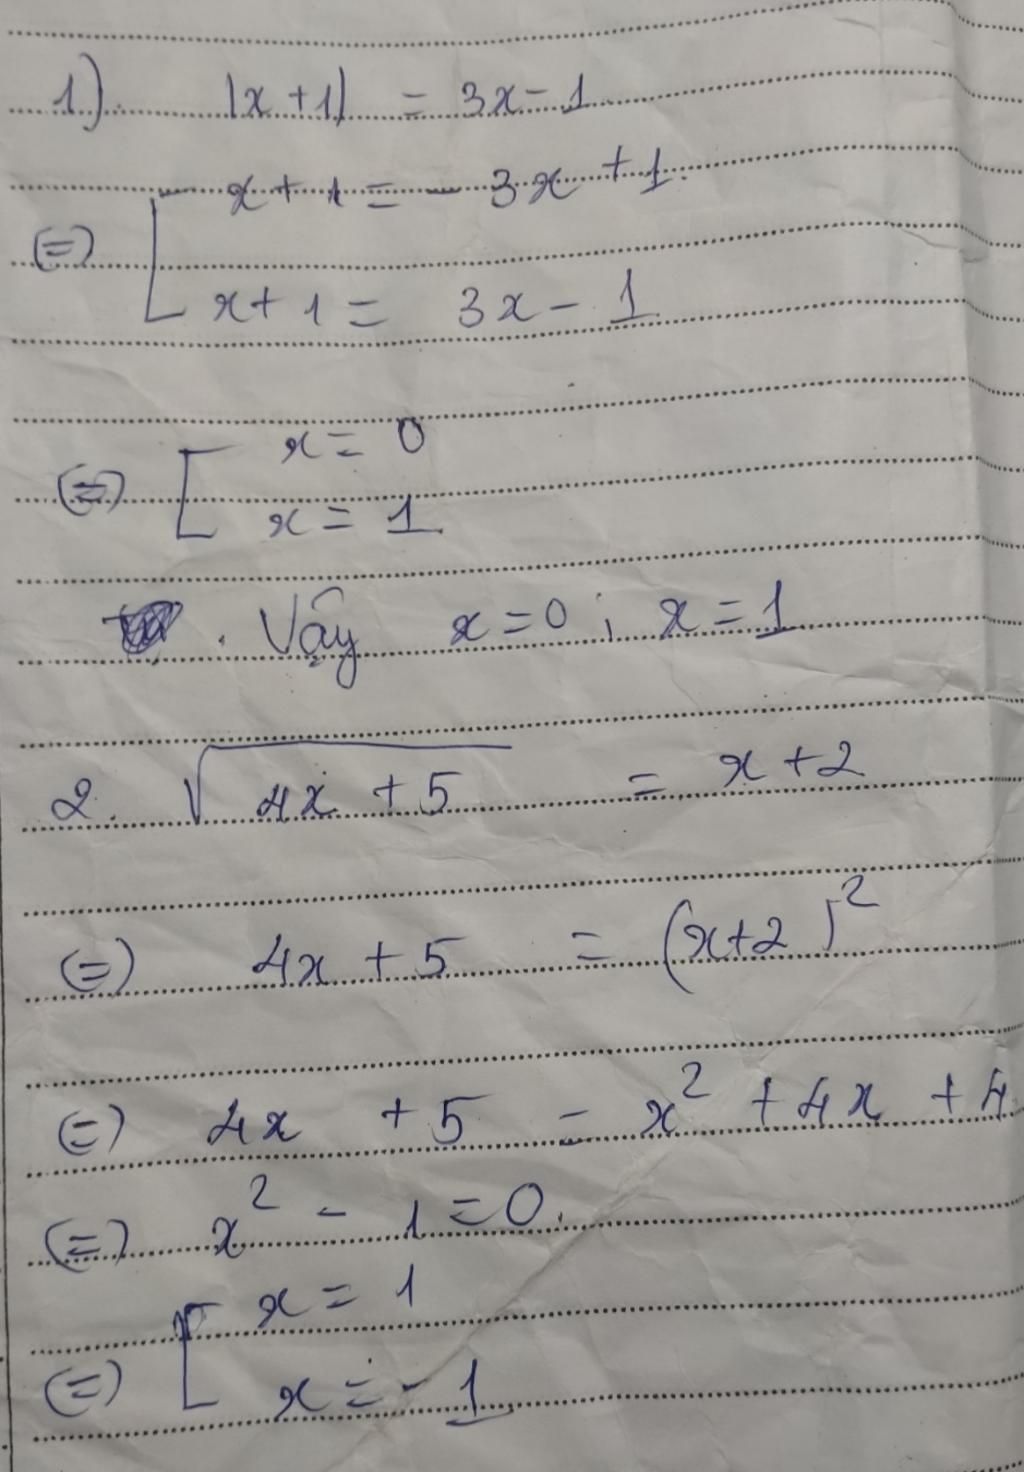 1). |x + 1| = 3x - 1
x + 1 = - 3x + 1.
(=) [
x + 1 = 3x - 1
x = 0
(=) [
x = 1
. Vậy x = 0 ; x = 1
2. √4x + 5 = x + 2
(=) 4x + 5 = (x+2)²
(=) 4x + 5 - x² + 4x + 4
(=) x² - 1 = 0.
x = 1
(=) [
x = - 1